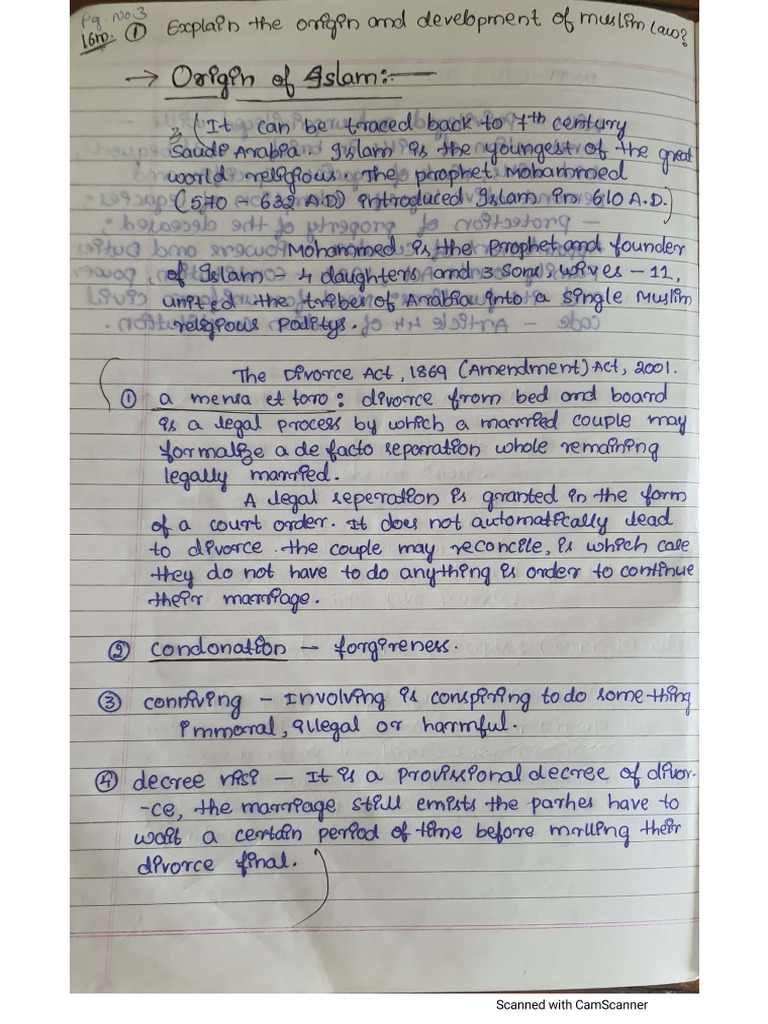 Pg. No 3
16m. ① Explain the origin and development of muslim law?
→ Origin of Islam:—
(It can be traced back to 7th century
Saudi Arabia. Islam is the youngest of the great
world religious. The prophet Mohammed
(570 - 632 A.D) introduced Islam in 610 A.D.)
Mohammed is the Prophet and founder
of Islam - 4 daughters and 3 sons, wives - 11,
united the tribes of Arabia into a single Muslim
religious palitys.
The Divorce Act, 1869 (Amendment) Act, 2001.
① a mensa et toro: divorce from bed and board
is a legal process by which a married couple may
formalize a de facto separation whole remaining
legally married.
A legal seperation is granted in the form
of a court order. It does not automatically lead
to divorce. the couple may reconcile, is which case
they do not have to do anything is order to continue
their marriage.
② condonation - forgireness.
③ conniving - Involving is conspiring to do some thing
immoral, illegal or harmful.
④ decree risi - It is a provissional decree of divor-
-ce, the marriage still emists the parhes have to
wait a certain period of time before their
divorce final.
Scanned with CamScanner